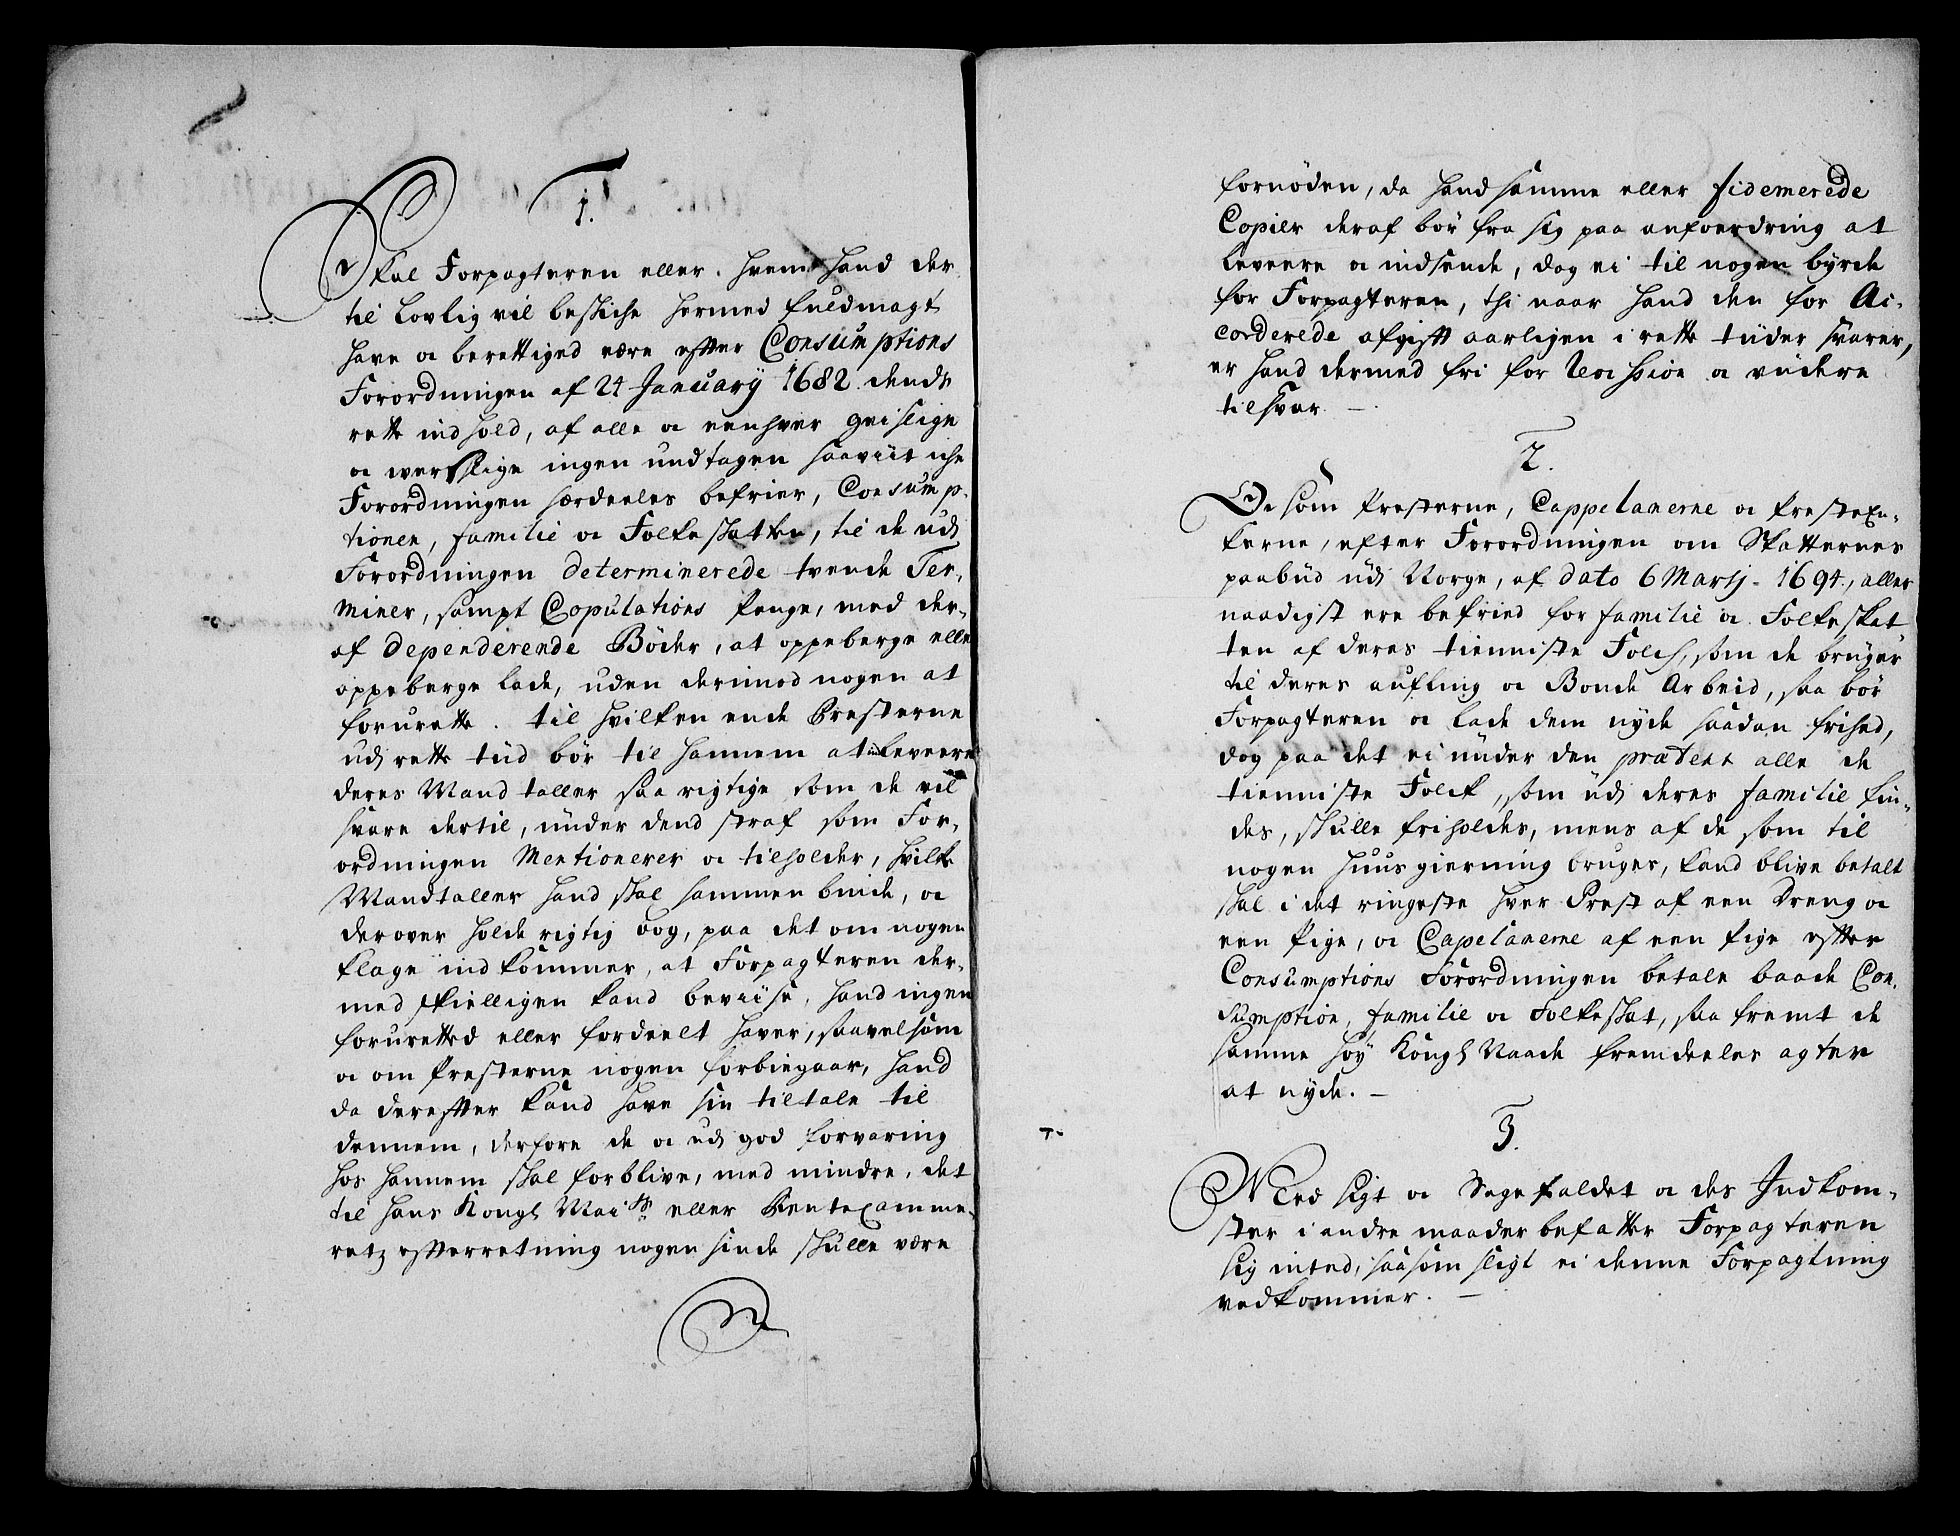 1.
Skal Forpagteren eller hvem hand der
til Lovlig vil beskiche hermed fuldmagt
have oc berettiged være efter Consumptions
Forordningen af 24 January 1682 dends
rette indhold, af alle oc eenhver geislige
oc werslige ingen undtagen saaviit iche
Forordningen særdeeles befrier, Consump-
tionen, familie oc Folkeskatten, til de udi
Forordningen determinerede tvende Ter-
miner, sampt Copulations Penge, med der-
af dependerende Bøder, at oppeberge eller
oppeberge lade, uden derimod nogen at
forurette. til hvilken ende Presterne
udi rette tiid bør til hannem at leveere
deres Mandtaller saa rigtige som de vil
svare dertil, under dend straf som For-
ordningen Mentionerer oc tilholder, hvilke
Mandtaller hand skal sammen binde, oc
derover holde rigtig bog, paa det om nogen
klage indkommer, at Forpagteren der-
med skielligen kand beviise, hand ingen
foruretted eller fordeelt haver, saavelsom
oc om Presterne nogen forbiegaar, hand
da derefter kand have sin tiltale til
dennem, derfore de oc udi god forvaring
hos hannem skal forblive, med mindre, det
til Hans Kongl Mai ts eller Rentecamme-
retz efterretning nogensinde skulle være
fornøden, da hand samme eller fidemerede
Copier deraf bør fra sig paa anfoerdring at
levere oc indsende, dog ei til nogen byrde
for Forpagteren, thi naar hand den for Ac-
corderede afgift aarligen i rette tiider svarer,
er hand dermed fri for Revision oc viidere
tilsvar. —
2.
Oc som Presterne, Cappelanerne oc Prestexn-
kerne, efter Forordningen om Skatternes
paabud udi Norge, af dato 6 Martj 1694, aller
naadigst ere befried for familie oc Folkeskat
ten af deres tienniste Folch, som de bruger
til deres aufling oc Bonde Arbeid, saa bør
Forpagteren oc lade dem nyde saadan frihed,
dog paa det ei under den prætext alle de
tienniste Folck, som udi deres familie fin-
des, skulle friholdes, mens af de som til
nogen Huus gierning bruges, kand blive betalt
skal i det ringeste hver Prest af een dreng oc
een Pige, oc Capelanerne af een Pige efter
Consumptions Forordningen betale baade Con-
sumption, familie oc Folkeskat, saa fremt de
samme høy Kongl Naade fremdeeles agter
at nyde. —
3.
Med Sigt oc Sagefaldet oc des Indkom-
ster i andre maader befatter Forpagteren
sig inted, saasom sligt ei denne Forpagtning
vedkommer. —